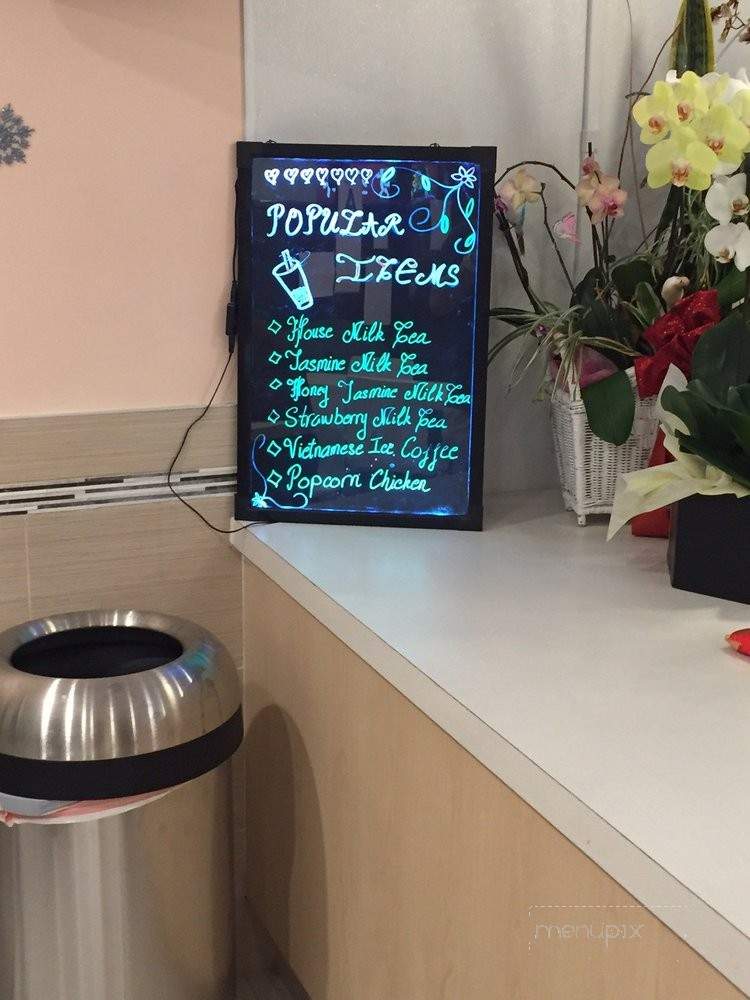 POPULAR
ITEMS
House Milk Tea
Jasmine Milk Tea
Honey Jasmine Milk Tea
Strawberry Milk Tea
Vietnamese Ice Coffee
Popcorn Chicken
menupix